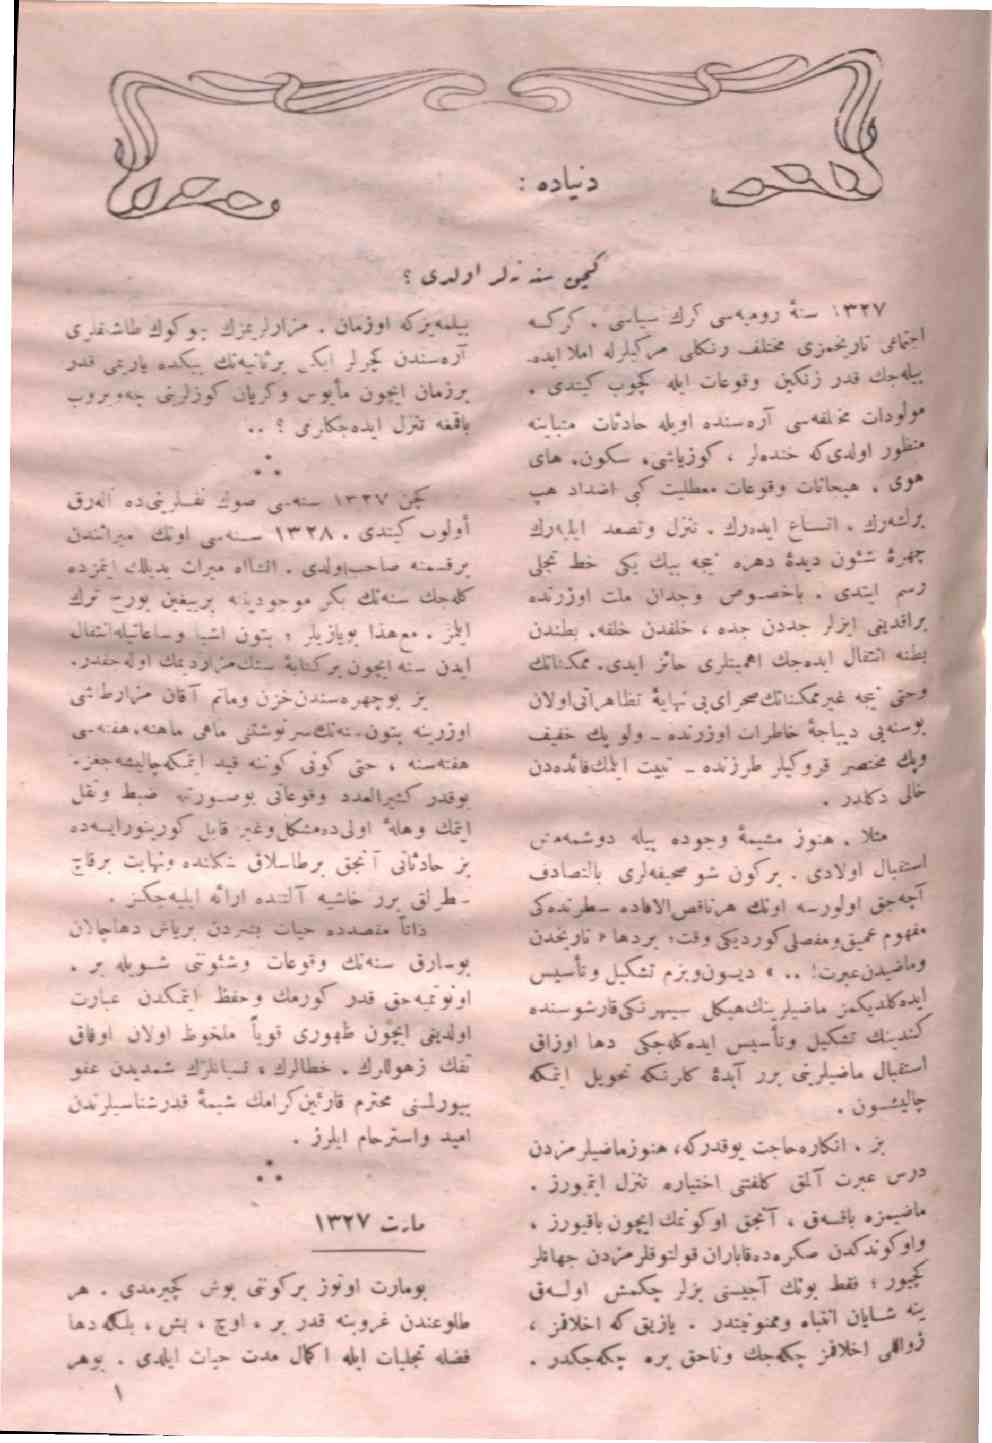 دنیاده :
كچن سنه نه‌لر اولدی ؟
١٣٢٧ سنهٔ رومیه‌سی كرك سیاسی ، كرك
اجتماعی تاریخمزی مختلف رنكلی مركبلرله املا ایده
بیله‌جك قدر زنكین وقوعات ایله كچوب كیتدی .
مولودات مختلفه‌سی آره‌سنده اویله حادثات متباینه
منظور اولدی‌كه خنده‌لر ، كوزیاشی، سكون، های
هوی ، هیجانات وقوعات معطلیت كبی اضداد هپ
برلشه‌رك ، اتساع ایده‌رك ، تنزل وتصعد ایلیه‌رك
چهرهٔ شئون دیدهٔ دهره نیجه بیك یكی خط تجلی
رسم ایتدی . باخصوص وجدان ملت اوزرنده
براقدیغی ایزلر جددن جده ، خلفدن خلفه، بطندن
بطنه انتقال ایده‌جك اهمیتلری حائز ایدی. ممكناتك
وحتی نیجه غیرممكناتك صحرای بی نهایهٔ تظاهراتی اولان
بوسنه‌یی دیباجهٔ خاطرات اوزرنده ـ ولو پك خفیف
وپك مختصر قروكیلر طرزنده ـ تثبیت ایتمك فائده‌دن
خالی دكلدر .
مثلا ، هنوز مشیمهٔ وجوده بیله دوشمه‌مش
استقبال اولادی . بركون شو صحیفه‌لری بالتصادف
آچه‌جق اولورسه اونك هرناقص الافاده سطرنده‌كی
مفهوم عمیق ومفصلی كوردیكی وقت؛ بردها « تاریخدن
وماضیدن عبرت! .. » دیسون وبزم تشكیل وتأسیس
ایده‌كلدیكمز ماضیلرینك هیكل سپهرنكی قارشوسنده
كندینك تشكیل وتأسیس ایده‌كله‌جكی دها اوزاق
استقبال ماضیلرینی برر آبدهٔ كارتكه تحویل ایتمكه
چالیشسون .
بز ، انكاره حاجت یوقدركه، هنوز ماضیلرمزدن
درس عبرت آلمق كلفتنی اختیاره تنزل ایتمیورز .
ماضیمزه باقسه‌ق ، آنجق اوكونمك ایچون باقیورز ،
واوكوندكدن صكره‌ده قاباران قولتوقلرمزدن جهانلر
كچیور ؛ فقط بونك آجیسنی بزلر چكمش اولسه‌ق
ینه شایان انتباه وممنونیتدر . یازیق كه اخلافمز ،
زواللی اخلافمز چكه‌جك وناحق یره چكه‌جكدر .
بیلمه‌یزكه اوزمان . مزارلریمزك بوكوك طاشلقلری
آره‌سندن كچرلر ایكن برثانیه‌نك بیكده یاریمی قدر
برزمان ایچون مأیوس وكریان كوزلرینی چه‌ویروب
باقمغه تنزل ایده‌جكلرمی ؟ ..
كچن ١٣٢٧ سنه‌سی صوك نفسلرینی‌ده آله‌رق
أولوب كیتدی . ١٣٢٨ سنه‌سی اونك میراثندن
برقسمنه صاحب اولدی . انشاالله میراث یدیلك ایتمزده
كله‌جك سنه‌نك بكر موجودیتنه بریغین بورج ترك
ایلمز . مع هذا بویازیلر ؛ بتون اشیا وساعاتیله انتقال
ایدن سنه ایچون بركتابهٔ سنك مزار دیمك اوله‌جقدر.
بز بوچهره‌سندن خزن وماتم آقان مزارطاشی
اوزرینه بتون سنه‌نك سرنوشتنی ماهی ماهنه، هفته‌سی
هفته‌سنه ، حتی كونی كوننه قید ایتمكه چالیشه‌جغز.
بوقدر كثیرالعدد وقوعاتی بوصورتله ضبط ونقل
ایتمك وهلهٔ اولی‌ده مشكل وغیر قابل كورینورایسه‌ده
بز حادثاتی آنجق برطاسلاق شكلنده ونهایت برقاچ
سطرلق برر حاشیه آلتنده ارائه ایلیه‌جكز .
ذاتاً مقصدده حیات بشردن بریاش دهاچالان
بوسارق سنه‌نك وقوعات وشئوننی شویله بر ،
اونوتمیه‌جق قدر كورمك وحفظ ایتمكدن عبارت
اولدیغی ایچون ظهوری قویاً ملحوظ اولان اوفاق
تفك ذهوللرك ، خطالرك ، نسیانلرك شمدیدن عفو
بیورلمسنی محترم قارئین كرامك شیمهٔ قدرشناسیلرندن
امید واسترحام ایلرز .
مارت ١٣٢٧
بومارت اوتوز بركوننی بوش كچیرمدی . هر
طلوعندن غروبنه قدر بر ، اوچ ، بش ، بلكه دها
فضله تجلیات ایله اكمال مدت حیات ایلدی . بوهر
١